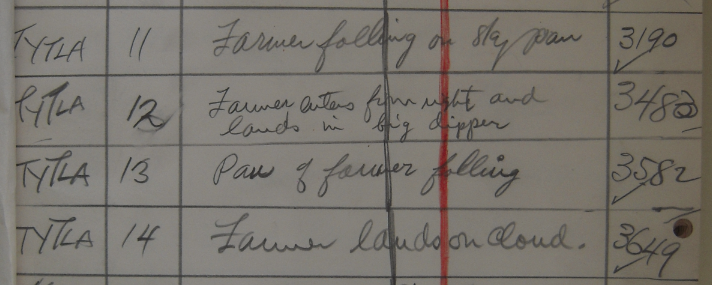 TYTLA 11 Farmer falling on sky pan 3190
TYTLA 12 Farmer enters from right and 3482
lands in big dipper
TYTLA 13 Pan of farmer falling 3582
TYTLA 14 Farmer lands on cloud. 3649